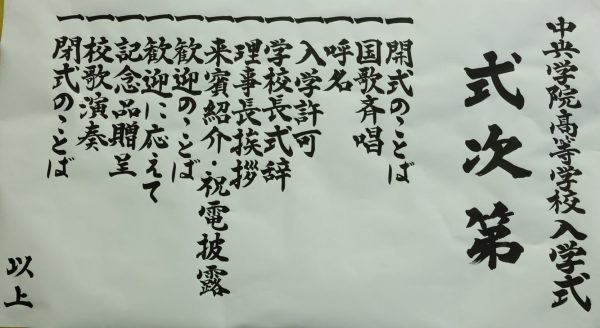 中央学院高等学校入学式
式次第
一 開式のことば
一 国歌斉唱
一 呼名
一 入学許可
一 学校長式辞
一 理事長挨拶
一 来賓紹介・祝電披露
一 歓迎のことば
一 歓迎に応えて
一 記念品贈呈
一 校歌演奏
一 閉式のことば
以上